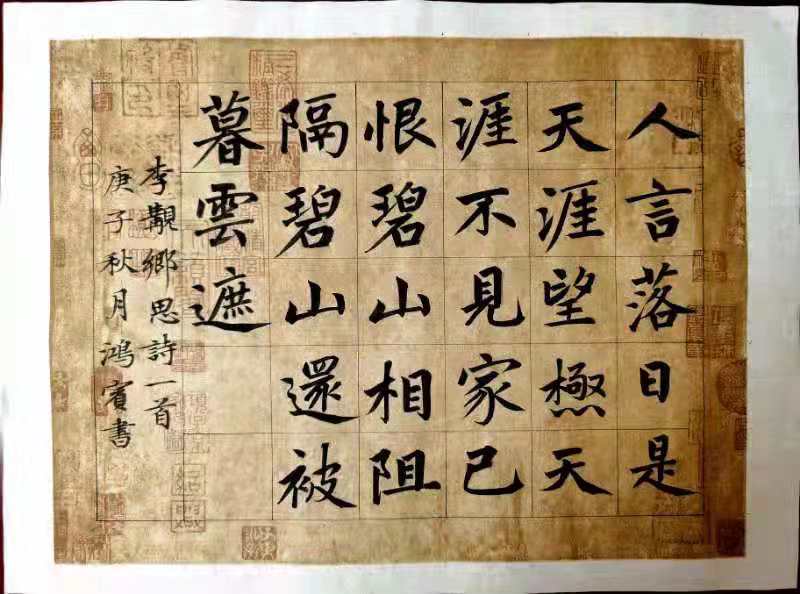 人言落日是
天涯望極天
涯不見家已
恨碧山相阻
隔碧山還被
暮雲遮
李觀鄉思詩一首
庚子秋月鴻賓書